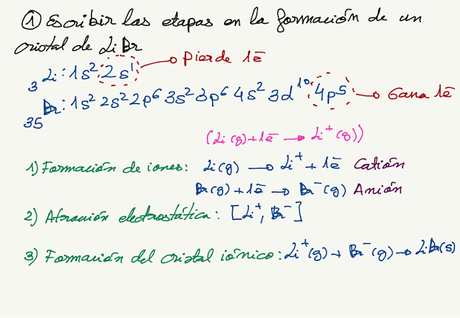 ① Escribir las etapas en la formación de un
cristal de LiBr
₃Li: 1s² 2s¹ → Pierde 1ē
₃₅Br: 1s² 2s² 2p⁶ 3s² 3p⁶ 4s² 3d¹⁰ 4p⁵ → Gana 1ē
(Li(g)+1ē → Li⁺(g))
1) Formación de iones: Li(g) → Li⁺ + 1ē Catión
Br(g) + 1ē → Br⁻(g) Anión
2) Atracción electrostática: [Li⁺, Br⁻]
3) Formación del cristal iónico: Li⁺(g) + Br⁻(g) → LiBr(s)